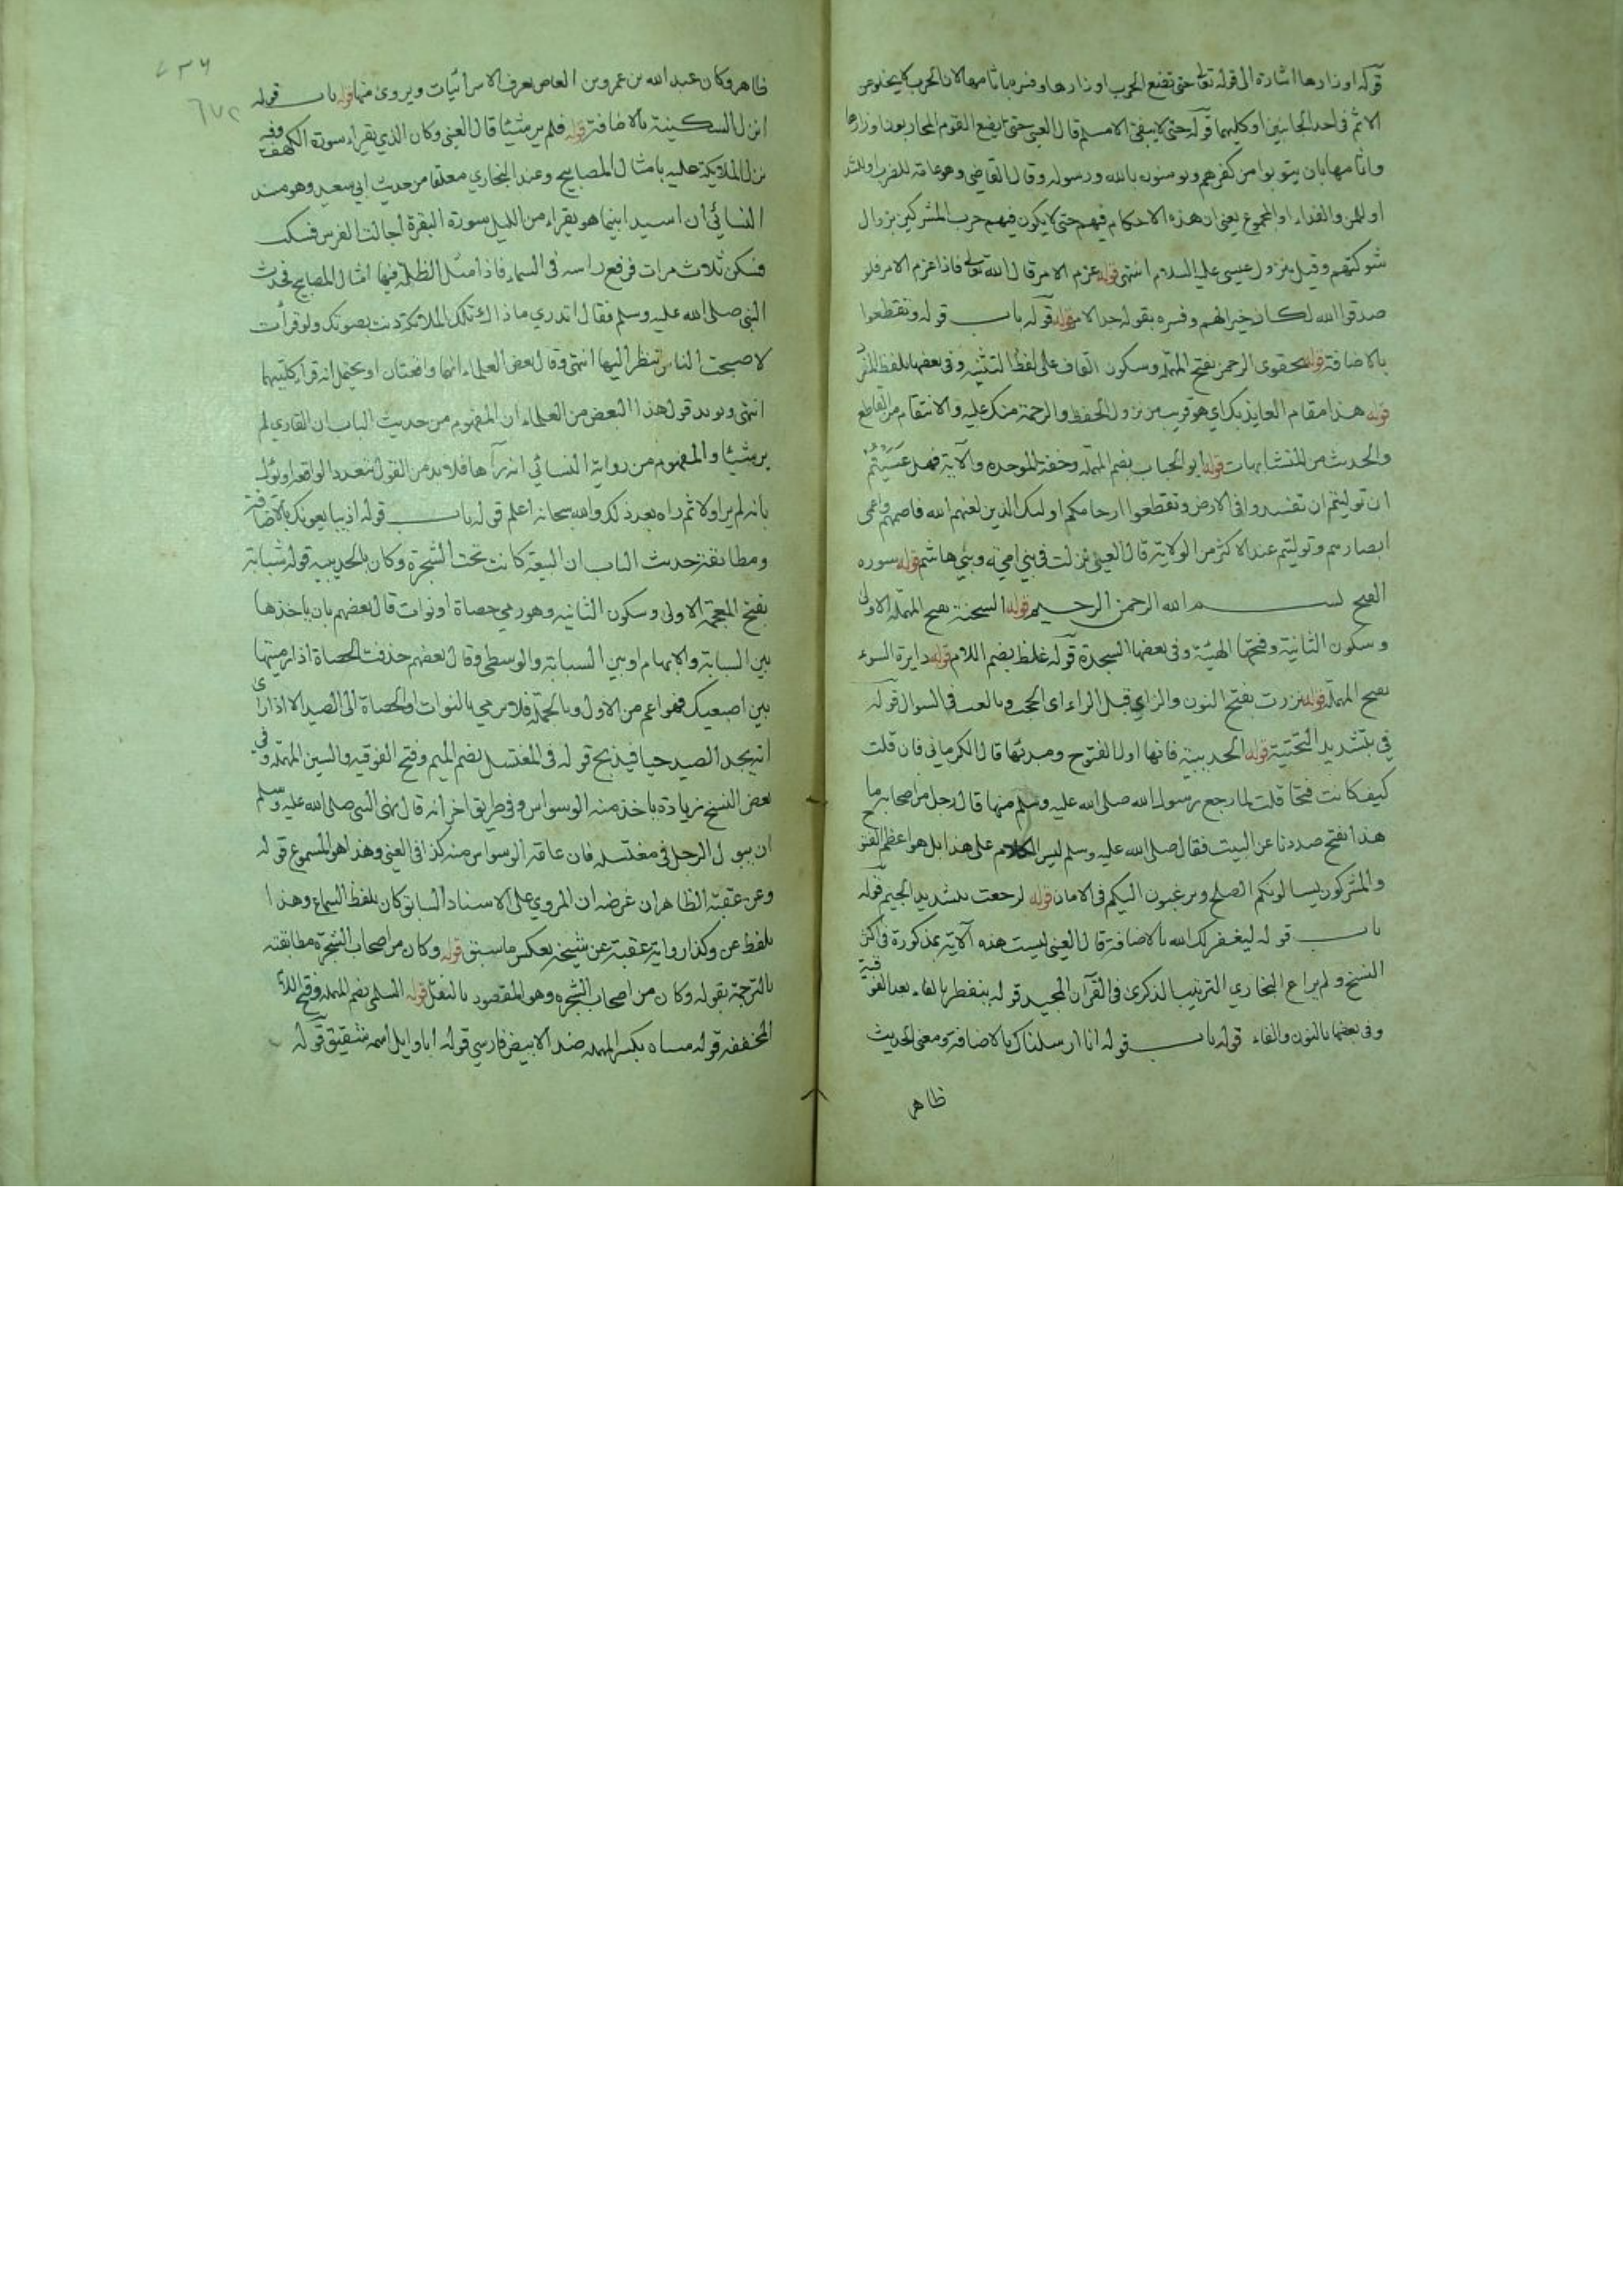 قوله اوزارها اشارة الى قوله تعالى حتى تضع الحرب اوزارها وفسره باثامها لان الحرب لا يخلو من
الاثم في احد الجانبين او كليهما قوله حتى لا يبقى الا مسلم قال العيني حتى يضع القوم المحاربون اوزارها
واثامها بان يتوبوا من كفرهم ويومنون بالله ورسوله وقال القاضي وهو غاية للضرب او للشد
او للمن والفداء او للمجموع يعني ان هذه الاحكام فيهم حتى لا يكون فيهم حرب المشركين بزوال
شوكتهم وقيل بنزول عيسى عليه السلام انتهى قوله عزم الامر قال الله تعالى فاذا عزم الامر فلو
صدقوا الله لكان خيرا لهم وفسره بقوله جد الامر قوله قوله باب قوله وتقطعوا
بالاضافة قوله بحقوى الرحمن بفتح المهملة وسكون القاف على لفظ التثنية وفي بعضها بلفظ المفرد
قوله هذا مقام العايذ بك اي هو قريب من نزول الحفظ والرحمة منك عليه والانتقام من القاطع
والحديث من المتشابهات قوله ابو الحباب بضم المهملة وخفة الموحدة والآية فهل عسيتم
ان توليتم ان تفسدوا في الارض وتقطعوا ارحامكم اولئك الذين لعنهم الله فاصمهم واعمى
ابصارهم وتوليتم عند الاكثر من الولاية قال العيني نزلت في بني امية وبني هاشم قوله سوره
الفتح بسم الله الرحمن الرحيم قوله السحنة بفتح المهملة الاولى
وسكون الثانية وفتحها الهيئة وفي بعضها السجدة قوله غلظ بضم اللام قوله دايرة السوء
بفتح المهملة قوله نزرت بفتح النون والزاي قبل الراء اى الححت وبالغت في السوال قوله
في بتشديد التحتية قوله الحديبية فانها اول الفتوح ومبدئها قال الكرماني فان قلت
كيف كانت فتحا قلت لما رجع رسول الله صلى الله عليه وسلم منها قال رجل من اصحابه ما
هذا بفتح صددنا عن البيت فقال صلى الله عليه وسلم ليس الكلام على هذا بل هو اعظم الفتوح
والمشركون يسالونكم الصلح ويرغبون اليكم في الامان قوله لرجعت بتشديد الجيم قوله
باب قوله ليغفر لك الله بالاضافة قال العيني ليست هذه الآية بمذكورة في اكثر
النسخ ولم يراع البخاري الترتيب الذكرى في القرآن المجيد قوله يتفطر بالفاء بعد الفوقية
وفي بعضها بالنون والفاء قوله باب قوله انا ارسلناك بالاضافة ومعنى الحديث
ظاهر
٤٣٦
٦٧٢
ظاهر وكان عبد الله بن عمرو بن العاص يعرف الاسرائيات ويروى منها قوله باب قوله
انزل السكينة بالاضافة قوله فلم ير شيئا قال العيني وكان الذي يقراء سورة الكهف وفيه
نزل الملايكة عليه بامثال المصابيح وعند البخاري معلقا من حديث ابي سعيد وهو مسند
النسائي ان اسيدا بينما هو يقراء من الليل سورة البقرة اجالت الفرس فسكت
فسكن ثلاث مرات فرفع راسه في السماء فاذا مثل الظلة فيها امثال المصابيح فحدث
النبي صلى الله عليه وسلم فقال اتدري ما ذاك تلك الملائكة دنت بصوتك ولو قرأت
لاصبحت الناس تنظر اليها انتهى وقال بعض العلماء انها واقعتان او يحتمل انه قراء كلتيهما
انتهى ويويد قول هذا البعض من العلماء ان المفهوم من حديث الباب ان القاري لم
ير شيئا والمفهوم من رواية النسائي انه رآها فلا بد من القول بتعدد الواقعه او يؤل
بانه لم ير اولا ثم راه بعد ذلك والله سبحانه اعلم قوله باب قوله اذ يبايعونك بالاضافة
ومطابقة حديث الباب ان البيعة كانت تحت الشجرة وكان بالحديبيه قوله شبابة
بفتح المعجمة الاولى وسكون الثانيه وهو رمي حصاة او نوات قال بعضهم بان ياخذها
بين السبابة والابهام او بين السبابة والوسطى وقال بعضهم خذفت الحصاة اذا رميتها
بين اصبعيك فهو اعم من الاول وبالجملة فلا يرمي بالنوات او الحصاة الى الصيد الا اذا راى
انه يجد الصيد حيا فيذبح قوله في المغتسل بضم الميم وفتح الفوقيه والسين المهملة وفي
بعض النسخ زيادة ياخذ منه الوسواس وفي طريق اخر انه قال نهى النبي صلى الله عليه وسلم
ان يبول الرجل في مغتسله فان عامة الوسواس منه كذا في العيني وهذا هو المسموع قوله
وعن عقبة الظاهر ان غرضه ان المروي على الاسناد السابق كان بلفظ السماع وهذا
بلفظ عن وكذا رواية عقبة عن شيخه بعكس ما سبق قوله وكان من اصحاب الشجرة مطابقته
بالترجمة بقوله وكان من اصحاب الشجره وهو المقصود بالنقل قوله السلمى بضم المهملة وفتح اللام
المخففه قوله سياه بكسر المهمله ضد الابيض فارسي قوله ابا وايل اسمه شقيق قوله